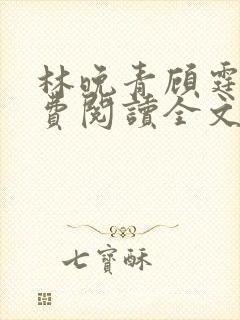 林晚青顾霆
费阅讀全文
七寶酥